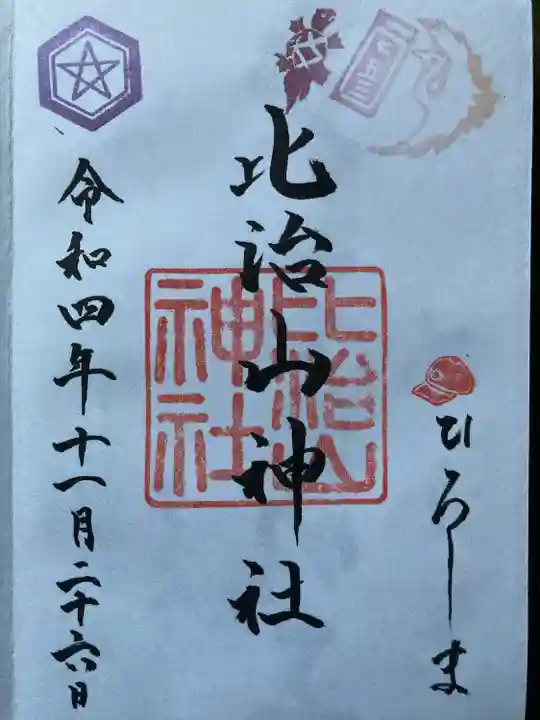 ひろしま
比治山神社
比治山
神社
令和四年十一月二十六日